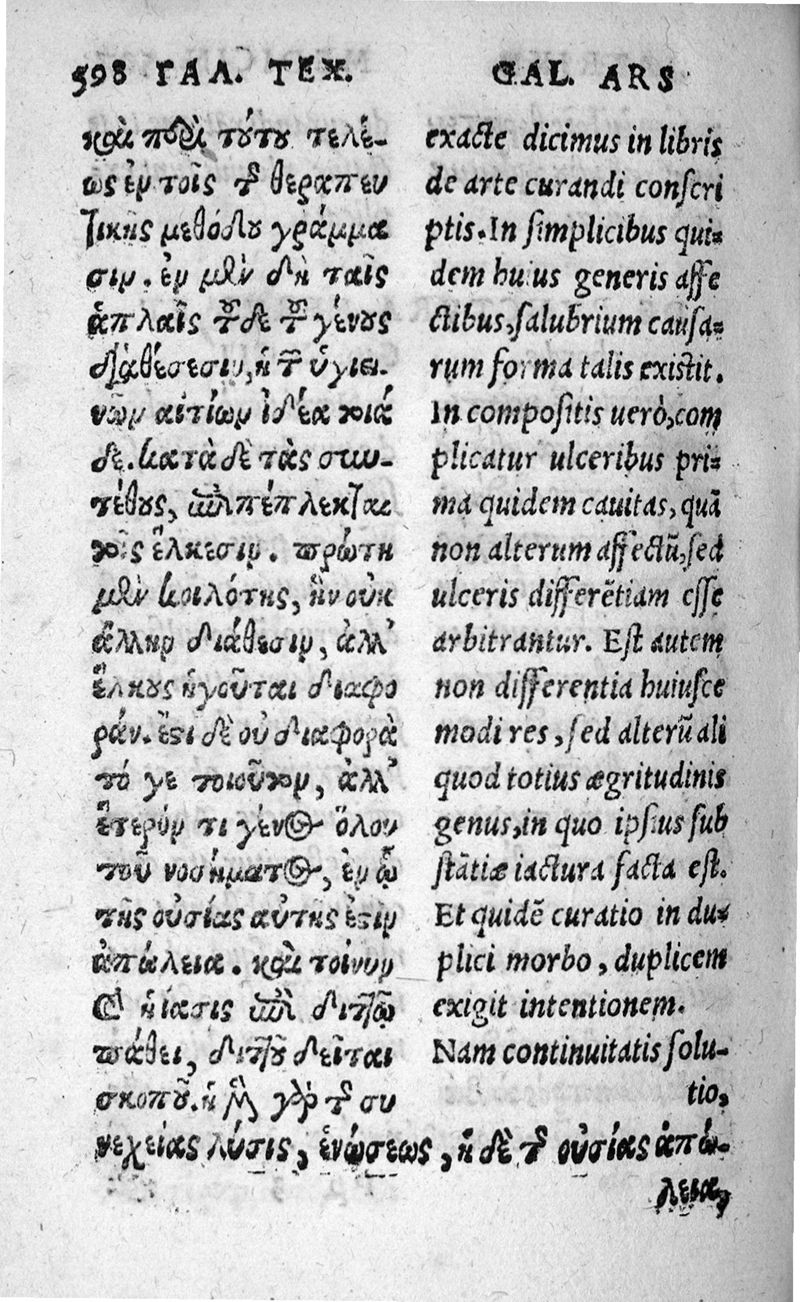 598 ΓΑΛ. ΤΕΧ.
καὶ περὶ τούτου τελέ-
ως ἐν τοῖς τῆς θεραπευ
τικῆς μεθόδου γράμμα
σιν. ἐν μὲν δὴ ταῖς
ἁπλαῖς τοῦδε τοῦ γένους
διαθέσεσιν, ἡ τῶν ὑγιει-
νῶν αἰτίων ἰδέα τοιά
δε. κατὰ δὲ τὰς συν-
θέτους, ἐπιπέπλεκται
τοῖς ἕλκεσιν. πρώτη
μὲν κοιλότης, ἣν οὐκ
ἄλλην διάθεσιν, ἀλλ᾽
ἕλκους ἡγοῦται διαφο
ράν. ἔστι δὲ οὐ διαφορὰ
τό γε τοιοῦτον, ἀλλ᾽
ἕτερόν τι γένος ὅλου
τοῦ νοσήματος, ἐν ᾧ
τῆς οὐσίας αὐτῆς ἐστιν
ἀπώλεια. καὶ τοίνυν
καὶ ἡ ἴασις ἐπὶ διττῷ
πάθει, διττοῦ δεῖται
σκοποῦ. ἡ μὲν γὰρ τῆς συ
νεχείας λύσις, ἑνώσεως, ἡ δὲ τῆς οὐσίας ἀπώ-
λεια,
GAL. ARS
exacte dicimus in libris
de arte curandi conscri
ptis. In simplicibus qui-
dem huius generis affe
ctibus, salubrium causa-
rum forma talis existit.
In compositis uerò, com
plicatur ulceribus pri-
ma quidem cauitas, quã
non alterum affectũ, sed
ulceris differẽtiam esse
arbitrantur. Est autem
non differentia huiusce
modi res, sed alterũ ali
quod totius ægritudinis
genus, in quo ipsius sub
stãtiæ iactura facta est.
Et quidẽ curatio in du-
plici morbo, duplicem
exigit intentionem.
Nam continuitatis solu-
tio,